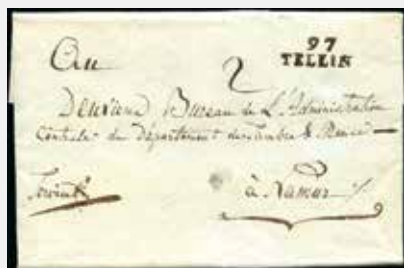 97
TELLIN
Au
2
Deuxieme Bureau de L'Administration
Centrale du Département de Sambre & Meuse
à Namur